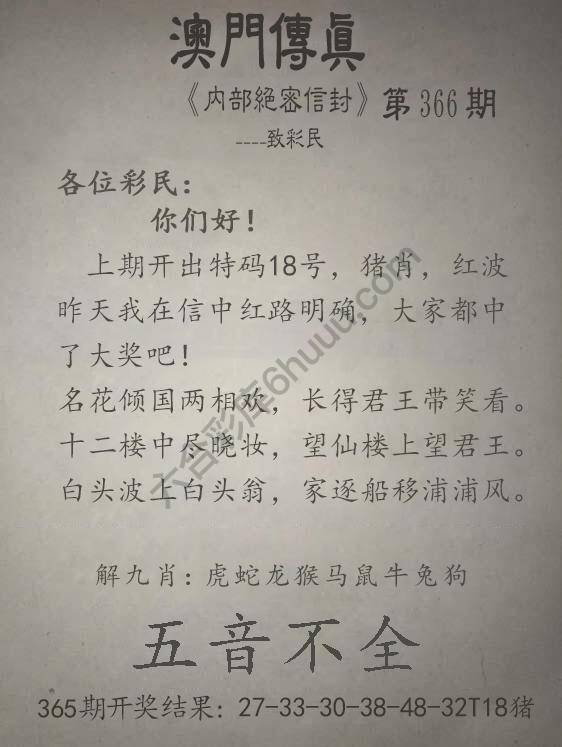 澳門傳真
《内部絕密信封》第366期
----致彩民
各位彩民：
你们好！
上期开出特码18号，猪肖，红波
昨天我在信中红路明确，大家都中
了大奖吧！
名花倾国两相欢，长得君王带笑看。
十二楼中尽晓妆，望仙楼上望君王。
白头波上白头翁，家逐船移浦浦风。
解九肖：虎蛇龙猴马鼠牛兔狗
五音不全
365期开奖结果：27-33-30-38-48-32T18猪
六合彩库6huuu.com